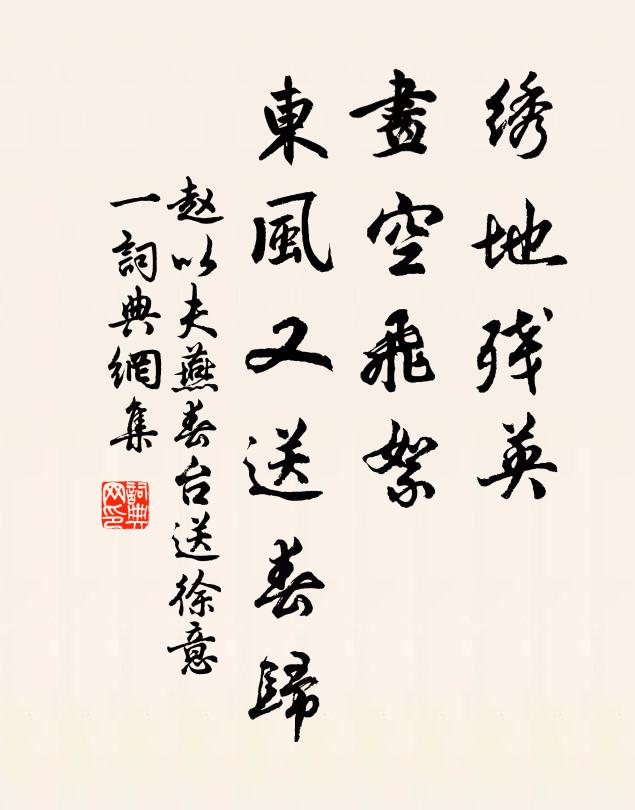 绣地残英
畫空飛絮
東風又送春歸
赵以夫燕春台送徐意
一詞典網集
詞典
网印